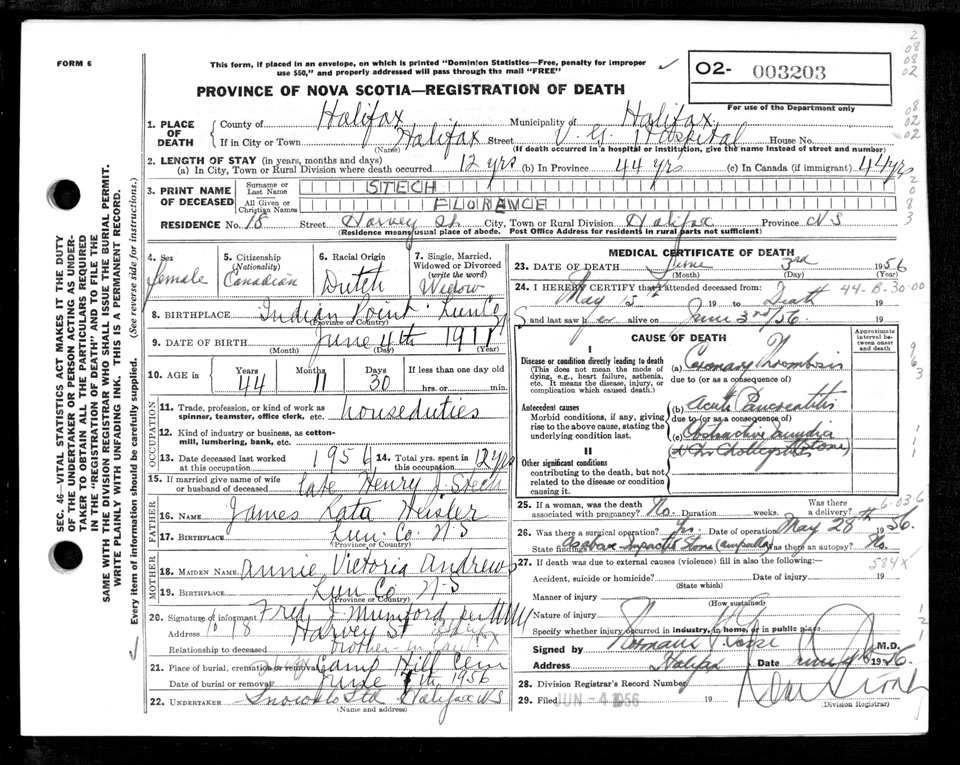 FORM 6
This form, if placed in an envelope, on which is printed "Dominion Statistics—Free, penalty for improper
use $50," and properly addressed will pass through the mail "FREE"
02- 003203
For use of the Department only
PROVINCE OF NOVA SCOTIA—REGISTRATION OF DEATH
1. PLACE OF DEATH
County of Halifax Municipality of Halifax
If in City or Town Halifax Street V. G. Hospital House No.
(Name) (If death occurred in a hospital or institution, give the name instead of street and number)
2. LENGTH OF STAY (in years, months and days)
(a) In City, Town or Rural Division where death occurred 12 yrs (b) In Province 44 yrs (c) In Canada (if immigrant) 44 yrs
3. PRINT NAME OF DECEASED
Surname or Last Name STECH
All Given or Christian Names FLORANCE
RESIDENCE No. 18 Street Harvey St. City, Town or Rural Division Halifax Province N S
(Residence means usual place of abode. Post Office Address for residents in rural parts not sufficient)
4. Sex female
5. Citizenship (Nationality) Canadian
6. Racial Origin Dutch
7. Single, Married, Widowed or Divorced (write the word) Widow
8. BIRTHPLACE Indian Point Lun Co
(Province or Country)
9. DATE OF BIRTH June 4th 1911
(Month) (Day) (Year)
10. AGE in Years 44 Months 11 Days 30 If less than one day old hrs. or min.
OCCUPATION
11. Trade, profession, or kind of work as spinner, teamster, office clerk, etc. houseduties
12. Kind of industry or business, as cotton-mill, lumbering, bank, etc.
13. Date deceased last worked at this occupation 1956 14. Total yrs. spent in this occupation 12 yrs
15. If married give name of wife or husband of deceased late Henry J Stech
FATHER
16. NAME James Kata Heisler
17. BIRTHPLACE Lun. Co. N-S
(Province or Country)
MOTHER
18. MAIDEN NAME Annie Victoria Andrews
19. BIRTHPLACE Lun Co N-S
(Province or Country)
20. Signature of informant Fred J Mumford
Address 18 Harvey St Halifax
Relationship to deceased brother-in-law
21. Place of burial, cremation or removal Camp Hill Cem
Date of burial or removal June 1956
22. UNDERTAKER Snows Ltd Halifax NS
(Name and address)
MEDICAL CERTIFICATE OF DEATH
23. DATE OF DEATH June 3rd 1956
(Month) (Day) (Year)
24. I HEREBY CERTIFY that I attended deceased from:
44-B-30-00
May 15th 19 to Death 19
and last saw her alive on June 3rd/56. 19
CAUSE OF DEATH
Approximate interval between onset and death
I
Disease or condition directly leading to death
(This does not mean the mode of dying, e.g., heart failure, asthenia, etc. It means the disease, injury, or complication which caused death.)
(a) Coronary Thrombosis
due to (or as a consequence of)
Antecedent causes
Morbid conditions, if any, giving rise to the above cause, stating the underlying condition last.
(b) Acute Pancreatitis
due to (or as a consequence of)
(c) Obstructive Jaundice
II
Other significant conditions
contributing to the death, but not related to the disease or condition causing it.
25. If a woman, was the death associated with pregnancy? No. Duration weeks. Was there a delivery?
26. Was there a surgical operation? Yes Date of operation May 28th 1956.
State findings as above Impacted Stone (ampulla) Was there an autopsy? No.
27. If death was due to external causes (violence) fill in also the following:
584X
Accident, suicide or homicide? Date of injury 19
(State which)
Manner of injury
(How sustained)
Nature of injury
Specify whether injury occurred in industry, in home, or in public place
Signed by M.D.
Address Halifax Date 1956.
28. Division Registrar's Record Number
29. Filed JUN - 4 1956 19
(Division Registrar)
SEC. 46—VITAL STATISTICS ACT MAKES IT THE DUTY
OF THE UNDERTAKER OR PERSON ACTING AS UNDER-
TAKER TO OBTAIN ALL THE PARTICULARS REQUIRED
IN THE "REGISTRATION OF DEATH" AND TO FILE THE
SAME WITH THE DIVISION REGISTRAR WHO SHALL ISSUE THE BURIAL PERMIT.
WRITE PLAINLY WITH UNFADING INK. THIS IS A PERMANENT RECORD.
Every item of information should be carefully supplied. (See reverse side for instructions.)